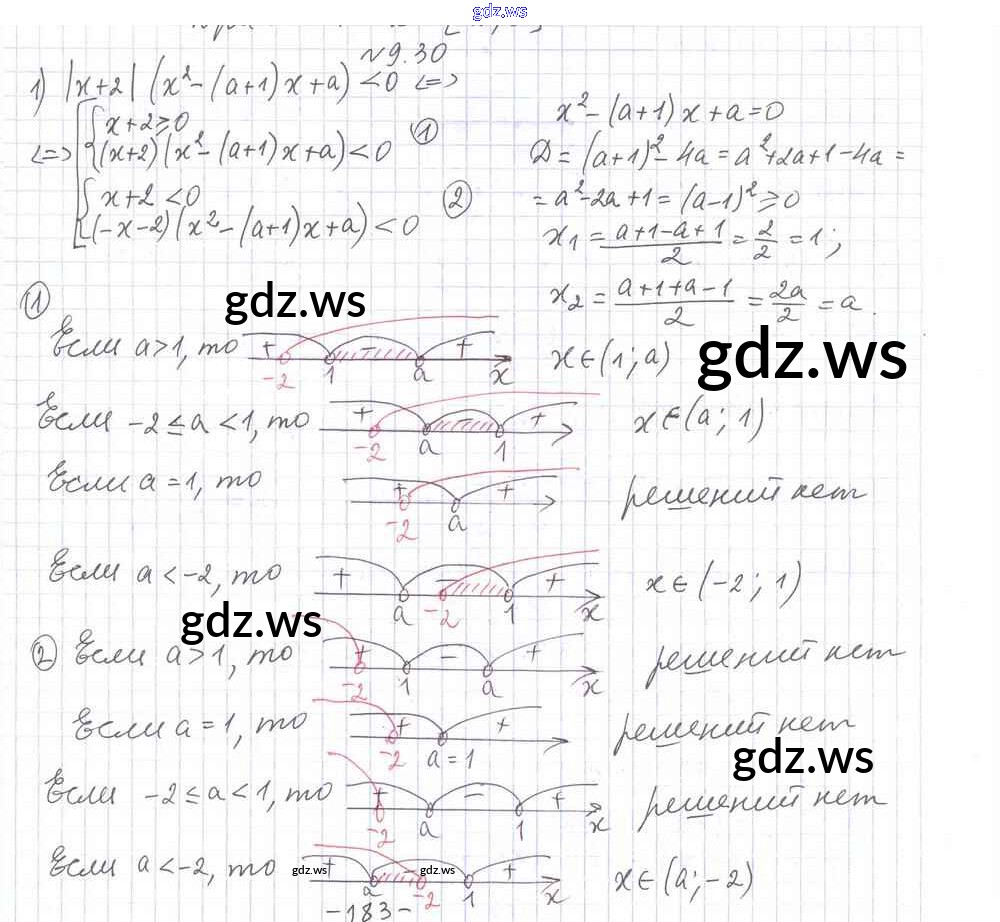 gdz.ws
№9.30
1) |x+2| (x²-(a+1)x+a) <0 <=>
<=> [ { x+2≥0
(x+2)(x²-(a+1)x+a)<0 ①
{ x+2<0
(-x-2)(x²-(a+1)x+a)<0 ②
x²-(a+1)x+a=0
Д=(a+1)²-4a=a²+2a+1-4a=
=a²-2a+1=(a-1)²≥0
x₁=(a+1-a+1)/2=2/2=1;
x₂=(a+1+a-1)/2=2a/2=a.
①
gdz.ws
Если a>1, то + - + -2 1 a x x∈(1;a)
gdz.ws
Если -2≤a<1, то + - + -2 a 1 x∈(a;1)
Если a=1, то + + -2 a решений нет
Если a<-2, то + - + a -2 1 x x∈(-2;1)
gdz.ws
② Если a>1, то + - + -2 1 a x решений нет
Если a=1, то + + -2 a=1 решений нет
gdz.ws
Если -2≤a<1, то + - + -2 a 1 x решений нет
Если a<-2, то + - + a -2 1 x x∈(a;-2)
gdz.ws gdz.ws
-183-